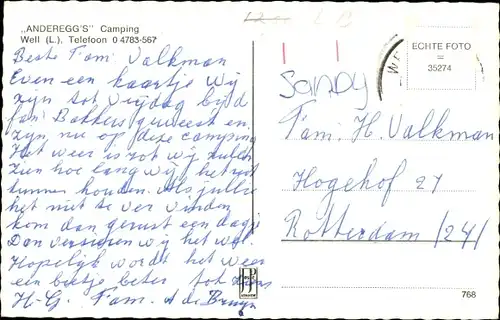 „ANDEREGG'S" Camping
Well (L.), Telefoon 0 4783-567
Beste Fam. Valkman
Even een kaartje wij
zijn tot vrijdag bij d
fam Bakkers geweest en
zijn nu op deze camping
Het weer is zot wij zullen
zien hoe lang wij het
kunnen houden. Als jullie
het niet te ver vinden
kom dan gerust een dagje
Dan versieren wij het wel.
Hopelijk wordt het weer
een beetje beter tot
H-G. Fam. A de Bruyn
Sandy
ECHTE FOTO
=
35274
Fam. H. Valkman
Hogehof 27
Rotterdam /24/
768